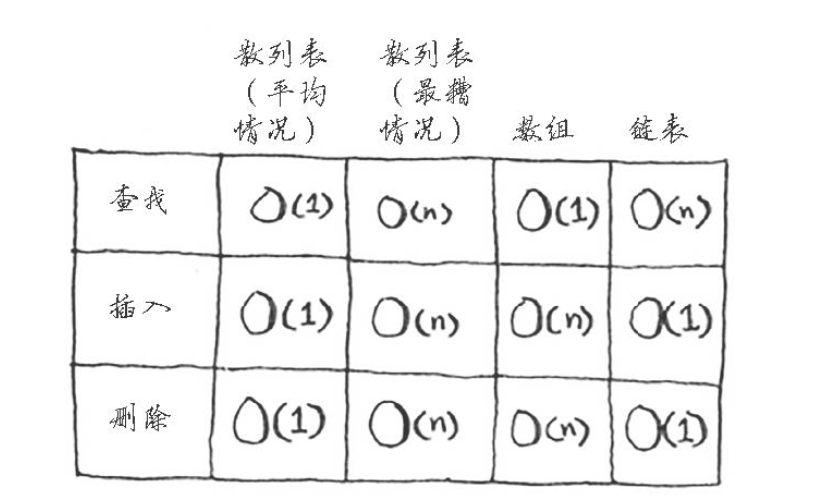 散列表 散列表
（平均 （最糟
情况） 情况） 数组 链表
查找 O(1) O(n) O(1) O(n)
插入 O(1) O(n) O(n) O(1)
删除 O(1) O(n) O(n) O(1)